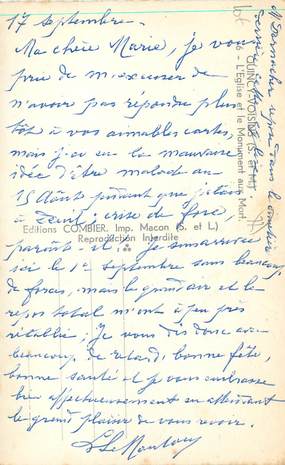 17 Septembre.
Ma chère Marie, je vous
prie de m'excuser de
n'avoir pas répondu plus
tôt à vos aimables cartes,
mais j'ai eu la mauvaise
idée d'être malade au
15 Août pendant que j'étais
à crise de foie,
paraît-il; je suis arrivée
ici le 1er Septembre sans beaucoup
de forces, mais le grand air et le
repos total m'ont à peu près
rétablie; Je vous dis donc avec
beaucoup de retard: bonne fête,
bonne santé et je vous embrasse
bien affectueusement en attendant
le grand plaisir de vous revoir.
repose dans le cimetière
QUINCY-VOISINS (S.-et-M.)
L'Eglise et le Monument aux Morts
Editions COMBIER, Imp. Macon (S. et L.)
Reproduction Interdite